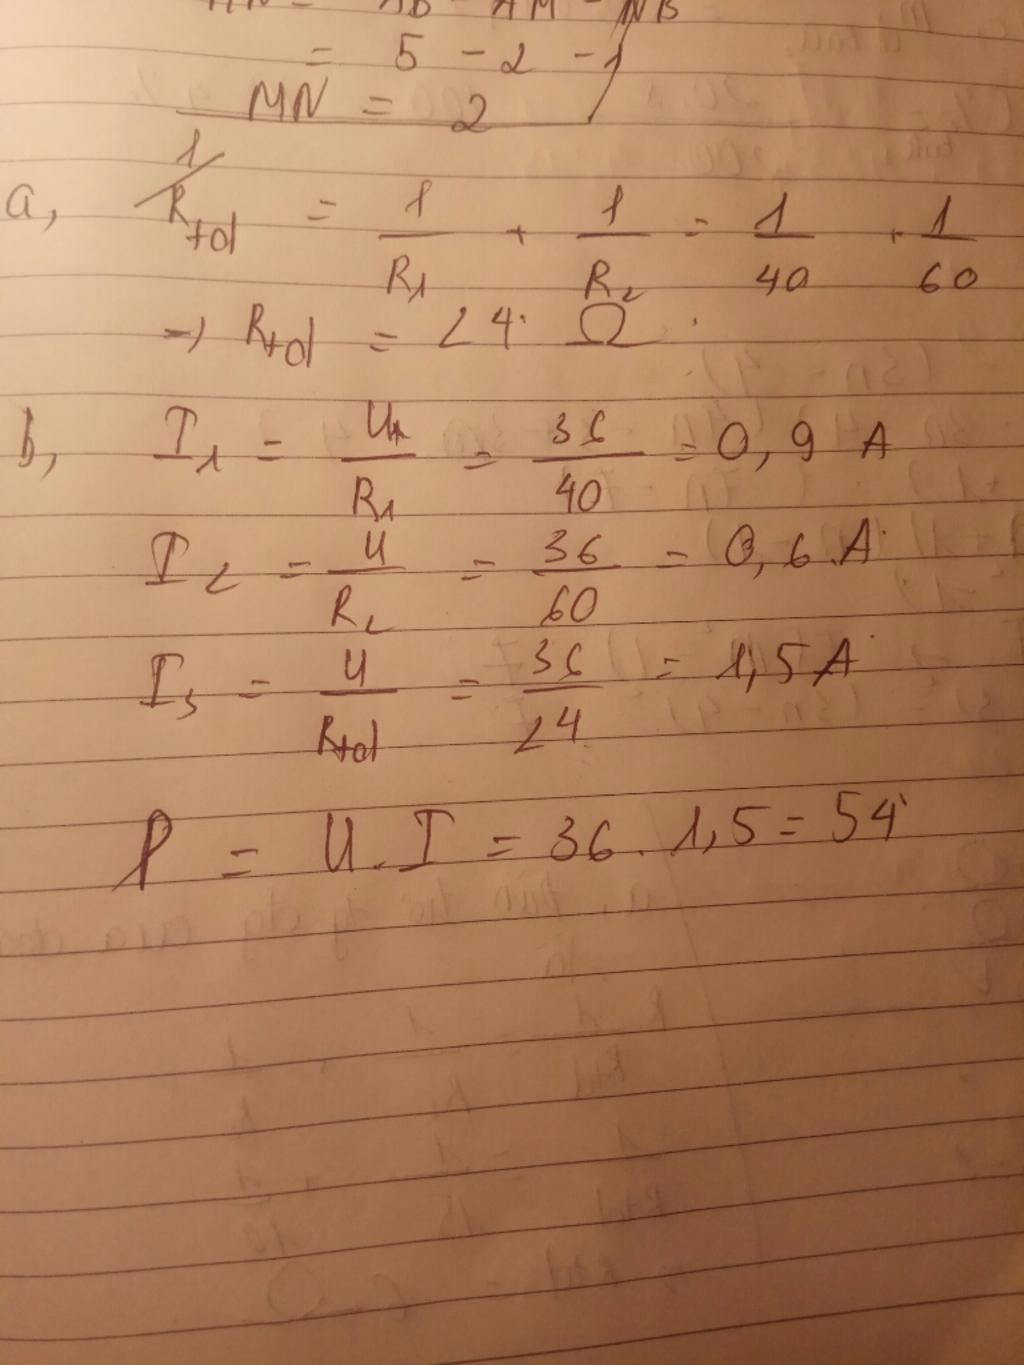 MN = AB - AM - NB
= 5 - 2 - 1
MN = 2
a, 1/Rtđ = 1/R1 + 1/R2 = 1/40 + 1/60
→ Rtđ = 24 Ω
b, I1 = U/R1 = 36/40 = 0,9 A
I2 = U/R2 = 36/60 = 0,6 A
I3 = U/Rtđ = 36/24 = 1,5 A
P = U.I = 36 . 1,5 = 54